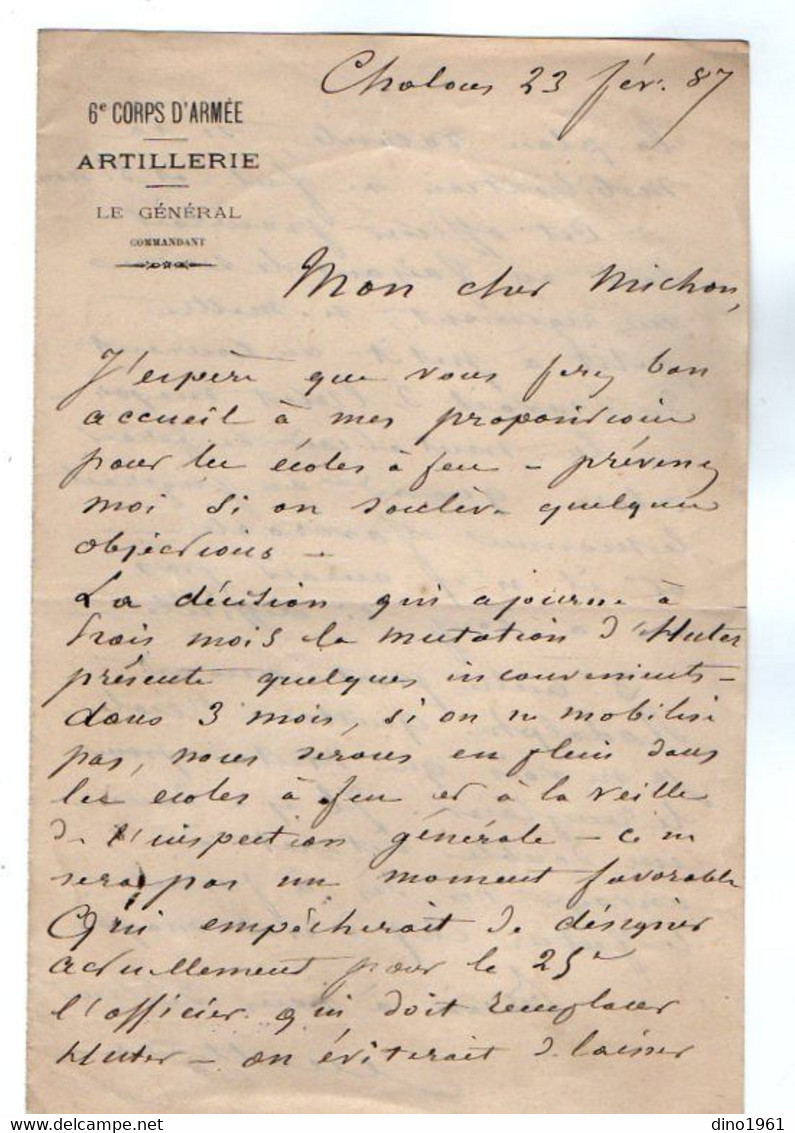 Chalons 23 fév. 87
6e CORPS D'ARMÉE
ARTILLERIE
LE GÉNÉRAL
COMMANDANT
Mon cher Michon,
J'espère que vous ferez bon
accueil à mes propositions
pour les écoles à feu – prévenez
moi si on soulève quelques
objections –
La décision qui ajourne à
trois mois la mutation d'Huter
présente quelques inconvenients –
dans 3 mois, si on ne mobilise
pas, nous serons en plein dans
les écoles à feu et à la veille
de l'inspection générale – ce ne
sera pas un moment favorable
Qui empêcherait de désigner
actuellement pour le 25e
l'officier qui doit remplacer
Huter – on éviterait de laisser
dino1961